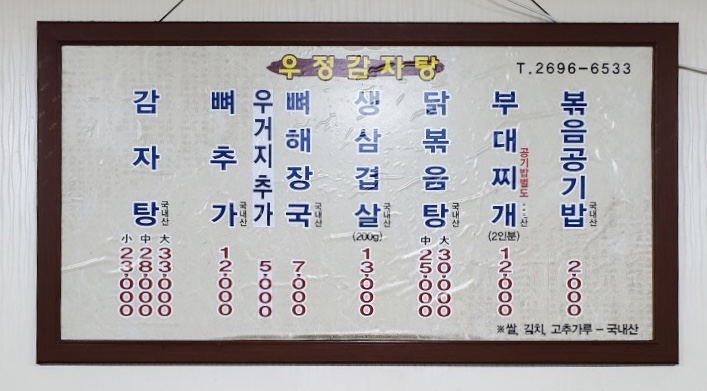 우정감자탕
T.2696-6533
감자탕 국내산
小 23.000
中 28.000
大 33.000
뼈추가 국내산
12.000
우거지추가
5.000
뼈해장국 국내산
7.000
생삼겹살 국내산
(200g)
13.000
닭볶음탕 국내산
中 25.000
大 30.000
부대찌개
공기밥별도
(2인분)
12.000
볶음공기밥 국내산
2.000
※쌀, 김치, 고추가루 - 국내산